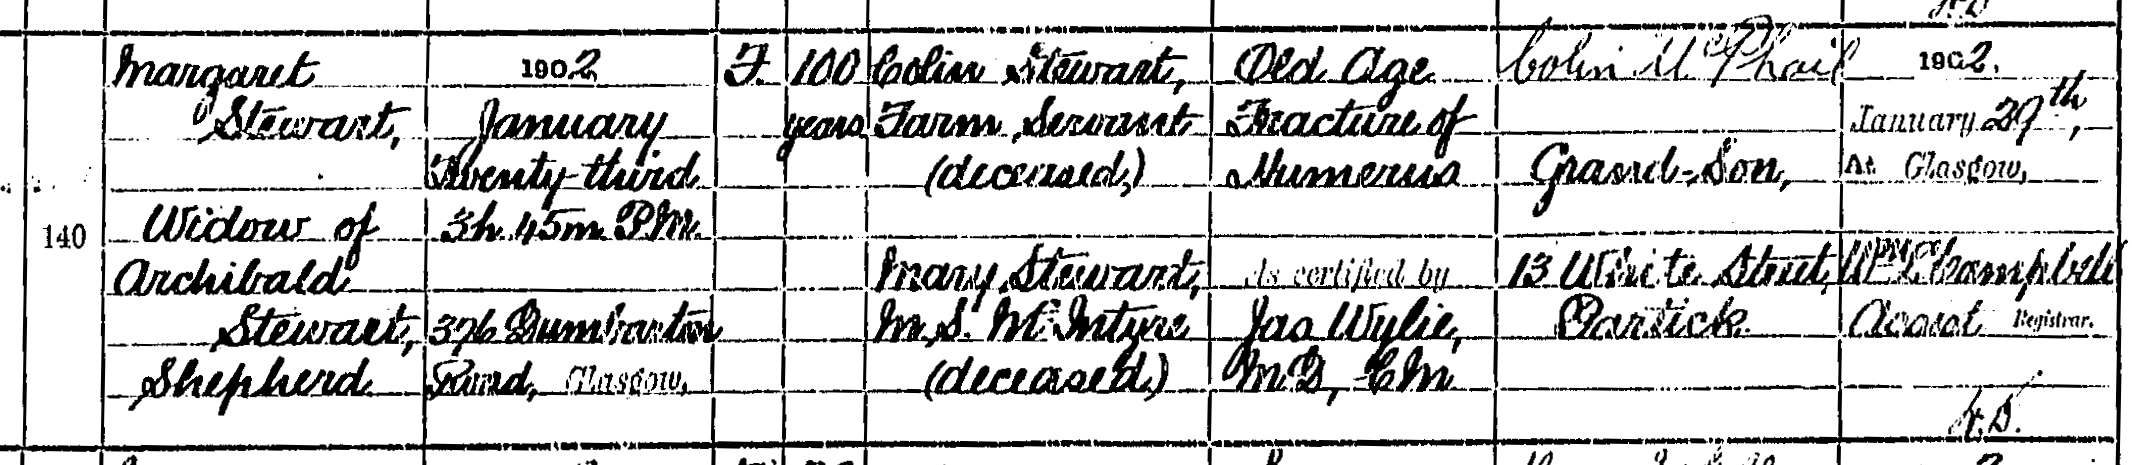 140
Margaret
Stewart,
Widow of
Archibald
Stewart,
Shepherd
1902
January
Twenty-third
3h. 45m. P.M.
376 Dumbarton
Road, Glasgow.
F.
100
years
Colin Stewart,
Farm Servant
(deceased,)
Mary Stewart,
M.S. McIntyre
(deceased)
Old Age
Fracture of
Humerus
As certified by
Jas Wylie,
M.B, CM
Colin McPhail
Grand-Son,
13 White Street,
Partick
1902.
January 29th,
At Glasgow.
Campbell
Assist Registrar.